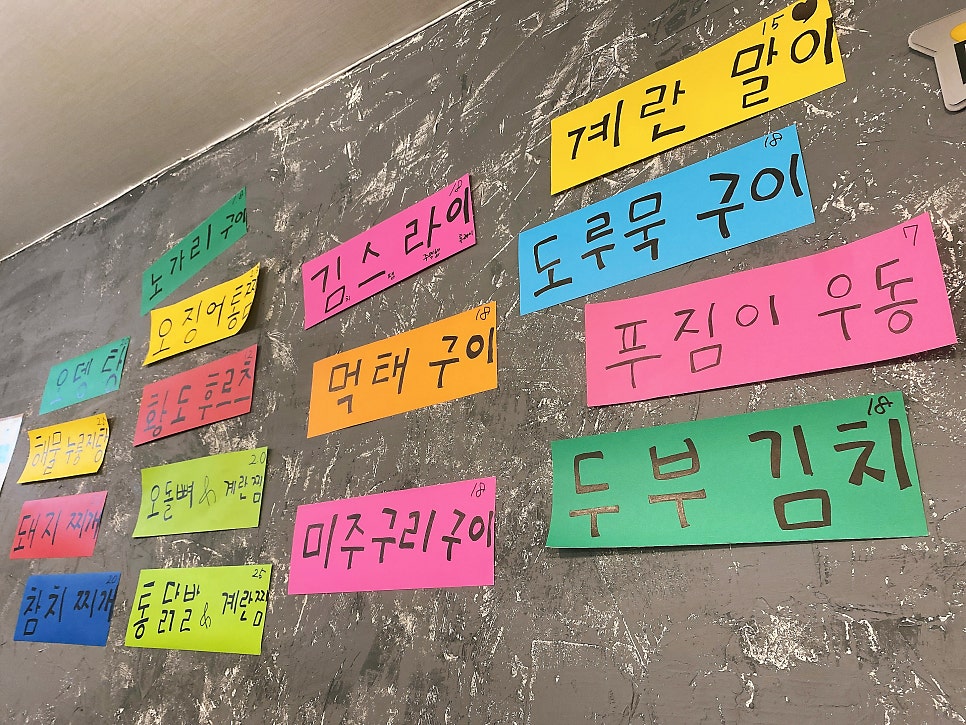 오뎅 탕
해물 누룽지탕
돼지 찌개
참치 찌개
노가리 구이
오징어통찜
황도 후르츠
20
오돌뼈 & 계란찜
25
통닭발 & 계란찜
18
김스라이
18
먹태 구이
18
미주구리구이
15
계란 말이
18
도루묵 구이
7
푸짐이 우동
18
두부 김치